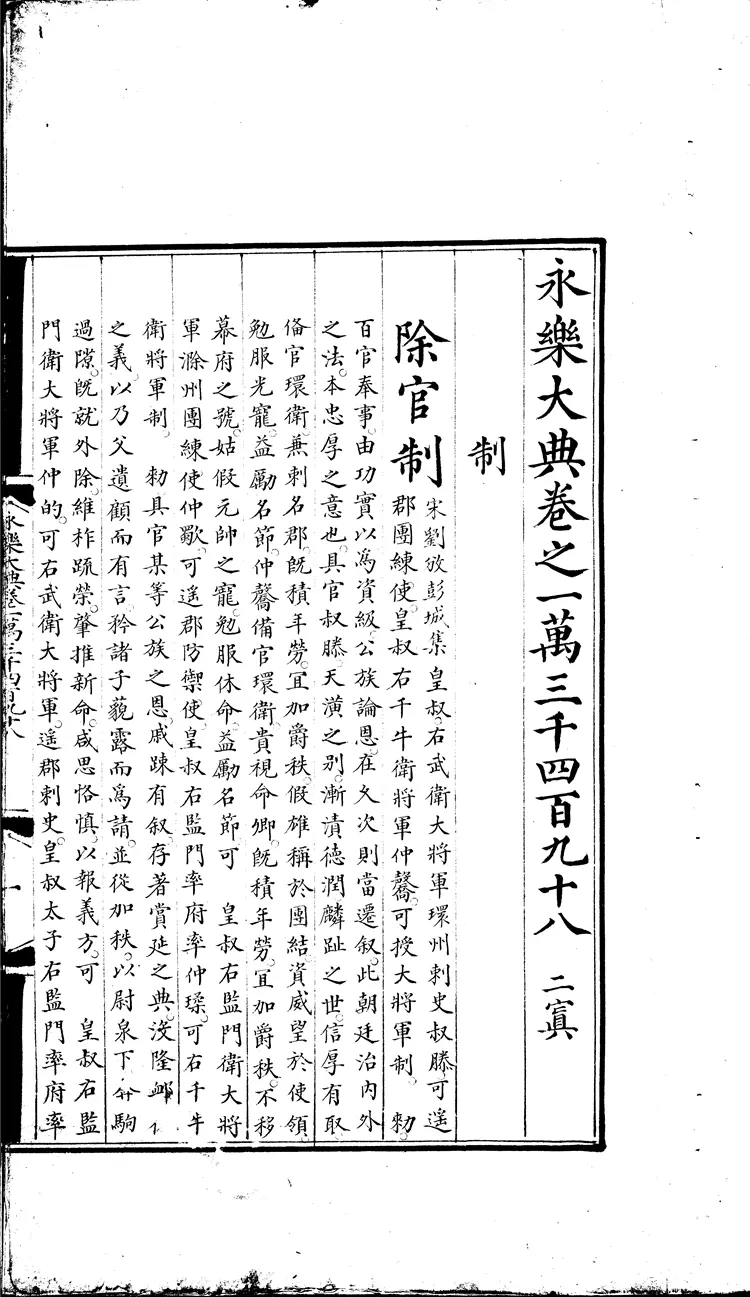 永樂大典卷之一萬三千四百九十八 二寘
制
除官制 宋劉攽彭城集 皇叔右武衛大將軍環州刺史叔滕可遥
郡團練使皇叔右千牛衛將軍仲騖可授大將軍制 勑
百官奉事由功實以爲資級公族論恩在久次則當遷叙此朝廷治内外
之法本忠厚之意也具官叔滕天潢之别漸漬德潤麟趾之世信厚有取
俻官環衛兼刺名郡旣積年勞宜加爵秩假雄稱於團結資威望於使領
勉服光寵益勵名節仲騖備官環衛貴視命卿旣積年勞宜加爵秩不移
幕府之號姑假元帥之寵勉服休命益勵名節可 皇叔右監門衛大將
軍滁州團練使仲歜可遥郡防禦使皇叔右監門率府率仲璪可右千牛
衛將軍制 勑具官某等公族之恩戚踈有叙存著賞延之典沒隆䘏
之義以乃父遺顧而有言矜諸子藐露而爲請並從加秩以尉泉下駒
過隙旣就外除維柞疏榮肇推新命咸思恪慎以報義方可 皇叔右監
門衛大將軍仲的可右武衛大將軍遥郡刺史皇叔太子右監門率府率
永樂大典卷一萬三千四百九十八
一